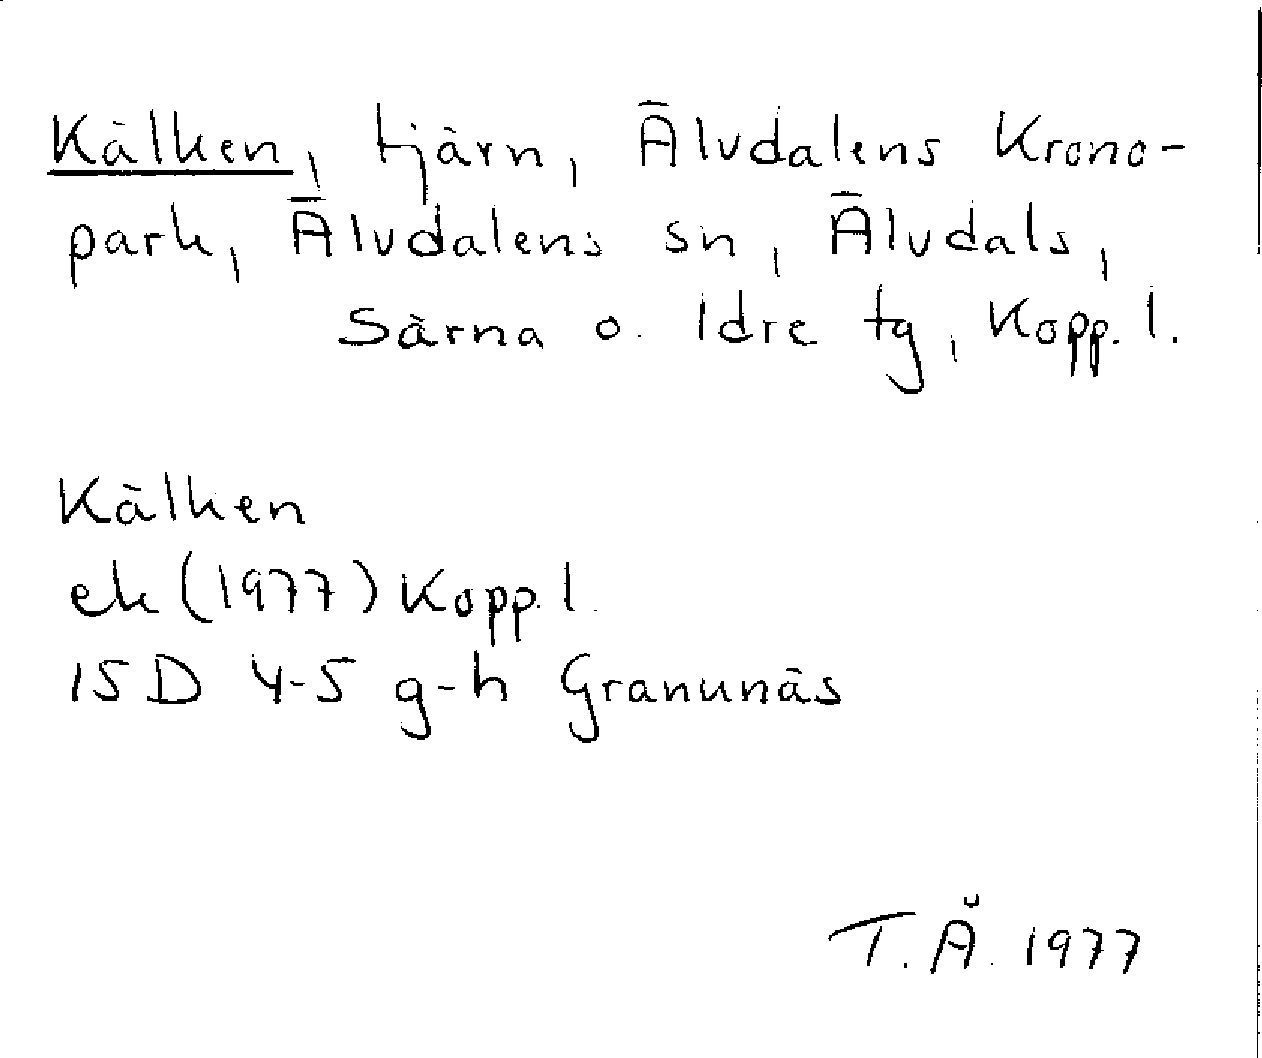 Kälken, tjärn, Älvdalens Krono-
park, Älvdalens sn, Älvdals,
Särna o. Idre tg, Kopp. l.
Kälken
ek (1977) Kopp. l.
15 D 4-5 g-h Granunäs
T. Å. 1977